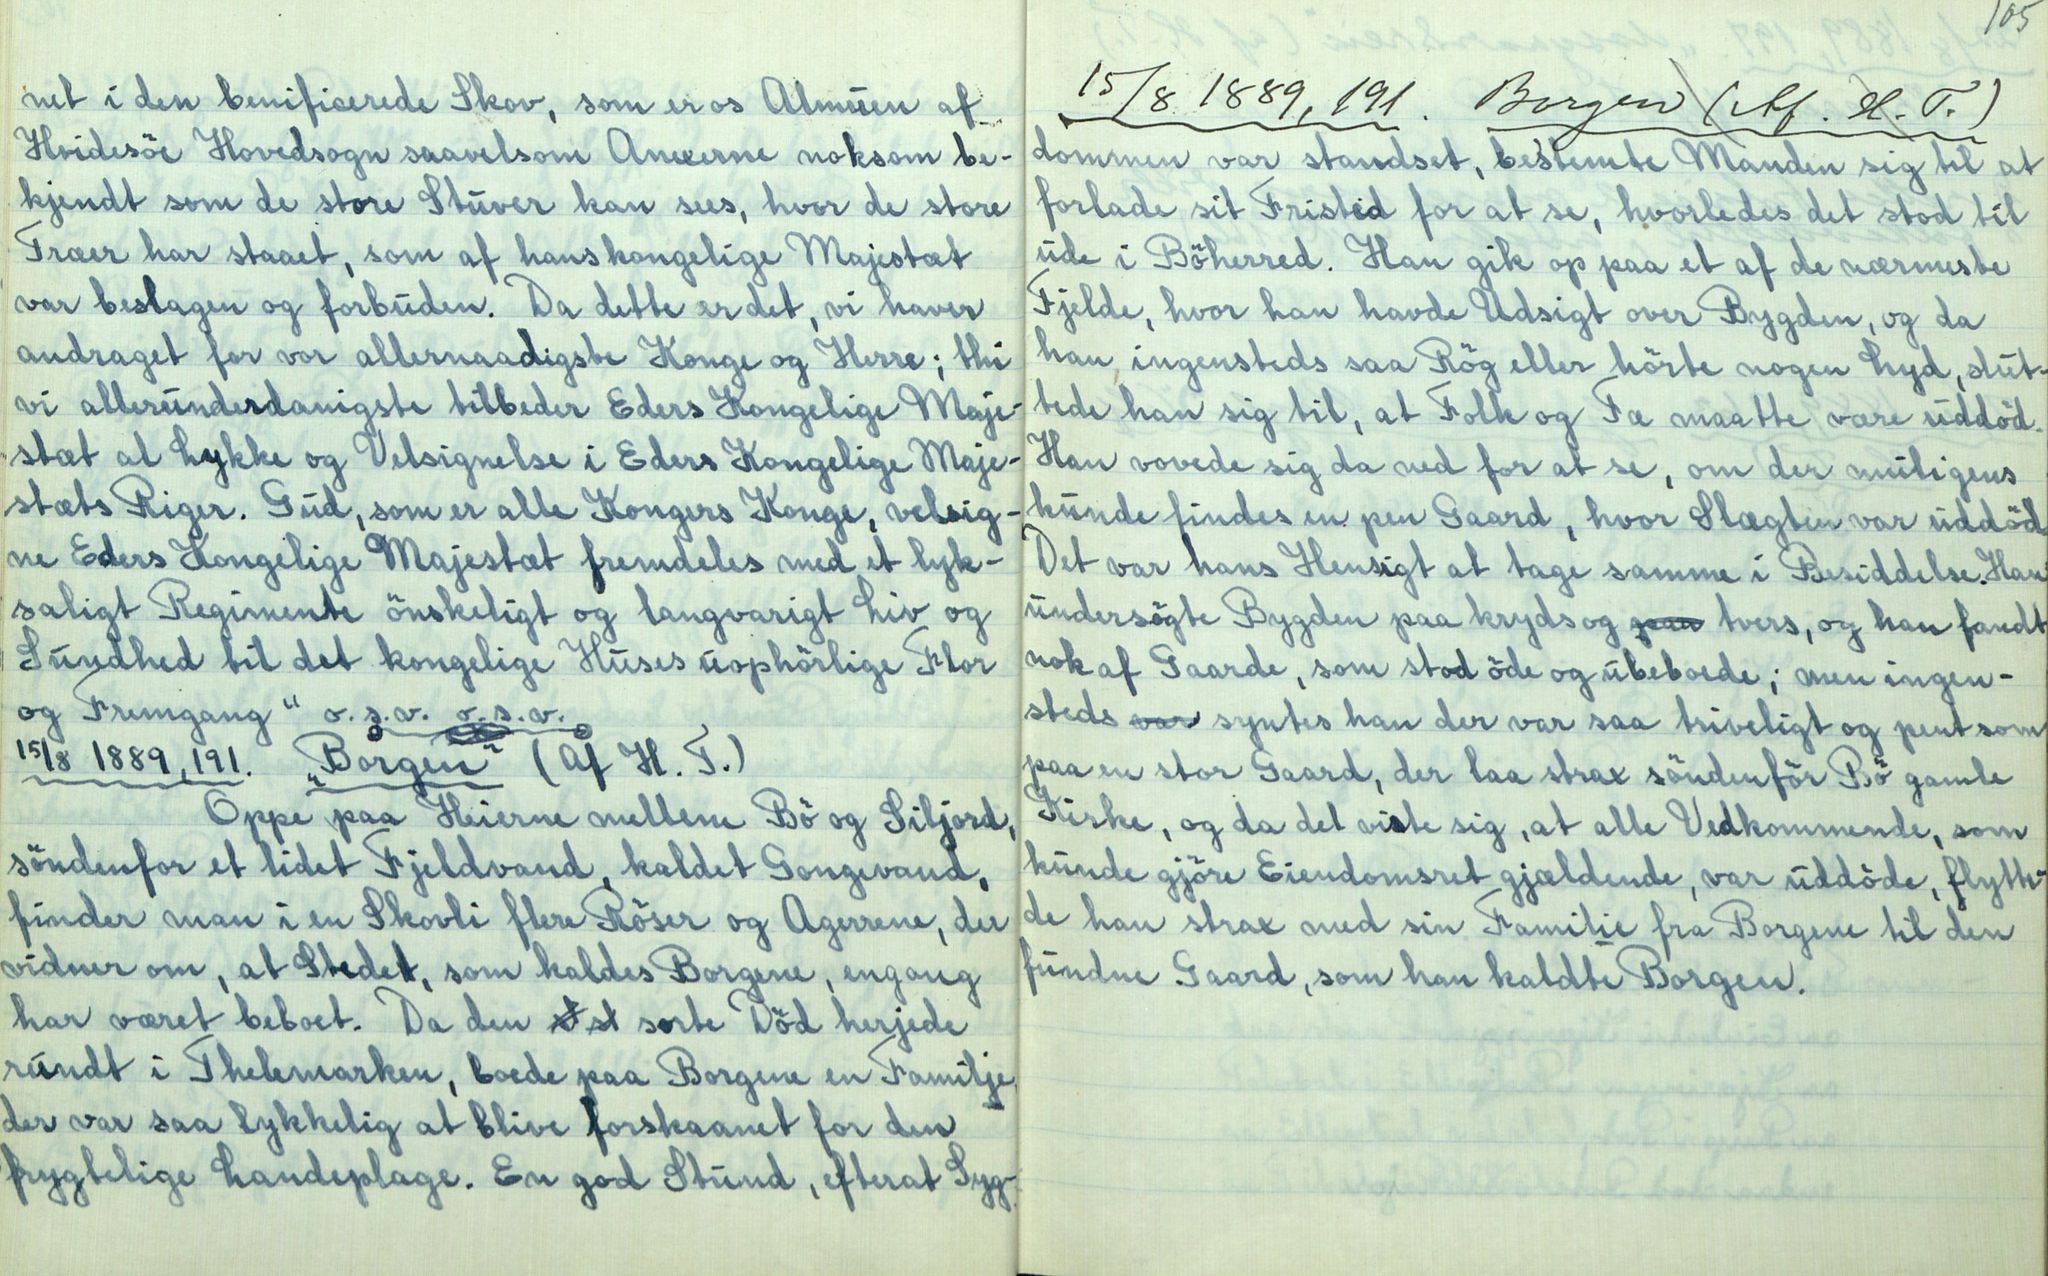 net i den benificerede Skov, som er os Almüen af
Hvidesöe Hovedsogn saavelsom Anexerne noksom be-
kjendt som de store Stüver kan sees, hvor de store
Træer har staaet, som af hans kongelige Majestæt
var beslagen og forbüden. Da dette er det, vi haver
andraget for vor allernaadigste Konge og Herre; thi
vi alleründerdanigste tilbeder Eders Kongelige Maje-
stæt al Lykke og Velsignelse i Eders Kongelige Maje-
stæts Riger. Güd, som er alle Kongers Konge, velsig-
ne Eders Kongelige Majestæt fremdeles med et lyk-
saligt Regimente önskeligt og langvarigt Liv og
Sündhed til det kongelige Hüses uophörlige Flor
og Fremgang" o.s.v. o.s.v.
15/8 1889, 191. "Borgen" (Af H. T.)
Oppe paa Heierne mellem Bö og Siljord,
söndenfor et lidet Fjeldvand, kaldet Gongevand,
finder man i en Skovli flere Röser og Agerrene, der
vidner om, at Stedet, som kaldes Borgene, engang
har været beboet. Da den sorte Död herjede
rundt i Thelemarken, boede paa Borgene en Familje,
der var saa lykkelig at blive forskaanet for den
frygtelige Landeplage. En god Stünd, efterat Syg-
105
15/8 1889, 191. Borgen (Af. H. T.)
dommen var standset, bestemte Manden sig til at
forlade sit Fristed for at se, hvorledes det stod til
üde i Böherred. Han gik op paa et af de nærmeste
Fjelde, hvor han havde Udsigt over Bygden, og da
han ingensteds saa Rög eller hörte nogen Lyd, slüt-
tede han sig til, at Folk og Fæ maatte være üddöd.
Han vovede sig da ned for at se, om der müligens
künde findes en pen Gaard, hvor Slægten var üddöd
Det var hans Hensigt at tage samme i Besiddelse. Han
ündersögte Bygden paa kryds og paa tvers, og han fandt
nok af Gaarde, som stod öde og übeboede; men ingen-
steds var syntes han der var saa triveligt og pent som
paa en stor Gaard, der laa strax söndenför Bö gamle
Kirke, og da det viste sig, at alle Vedkommende, som
künde gjöre Eiendomsret gjældende, var üddöde, flytte-
de han strax med sin Familie fra Borgene til den
fündne Gaard, som han kaldte Borgen.